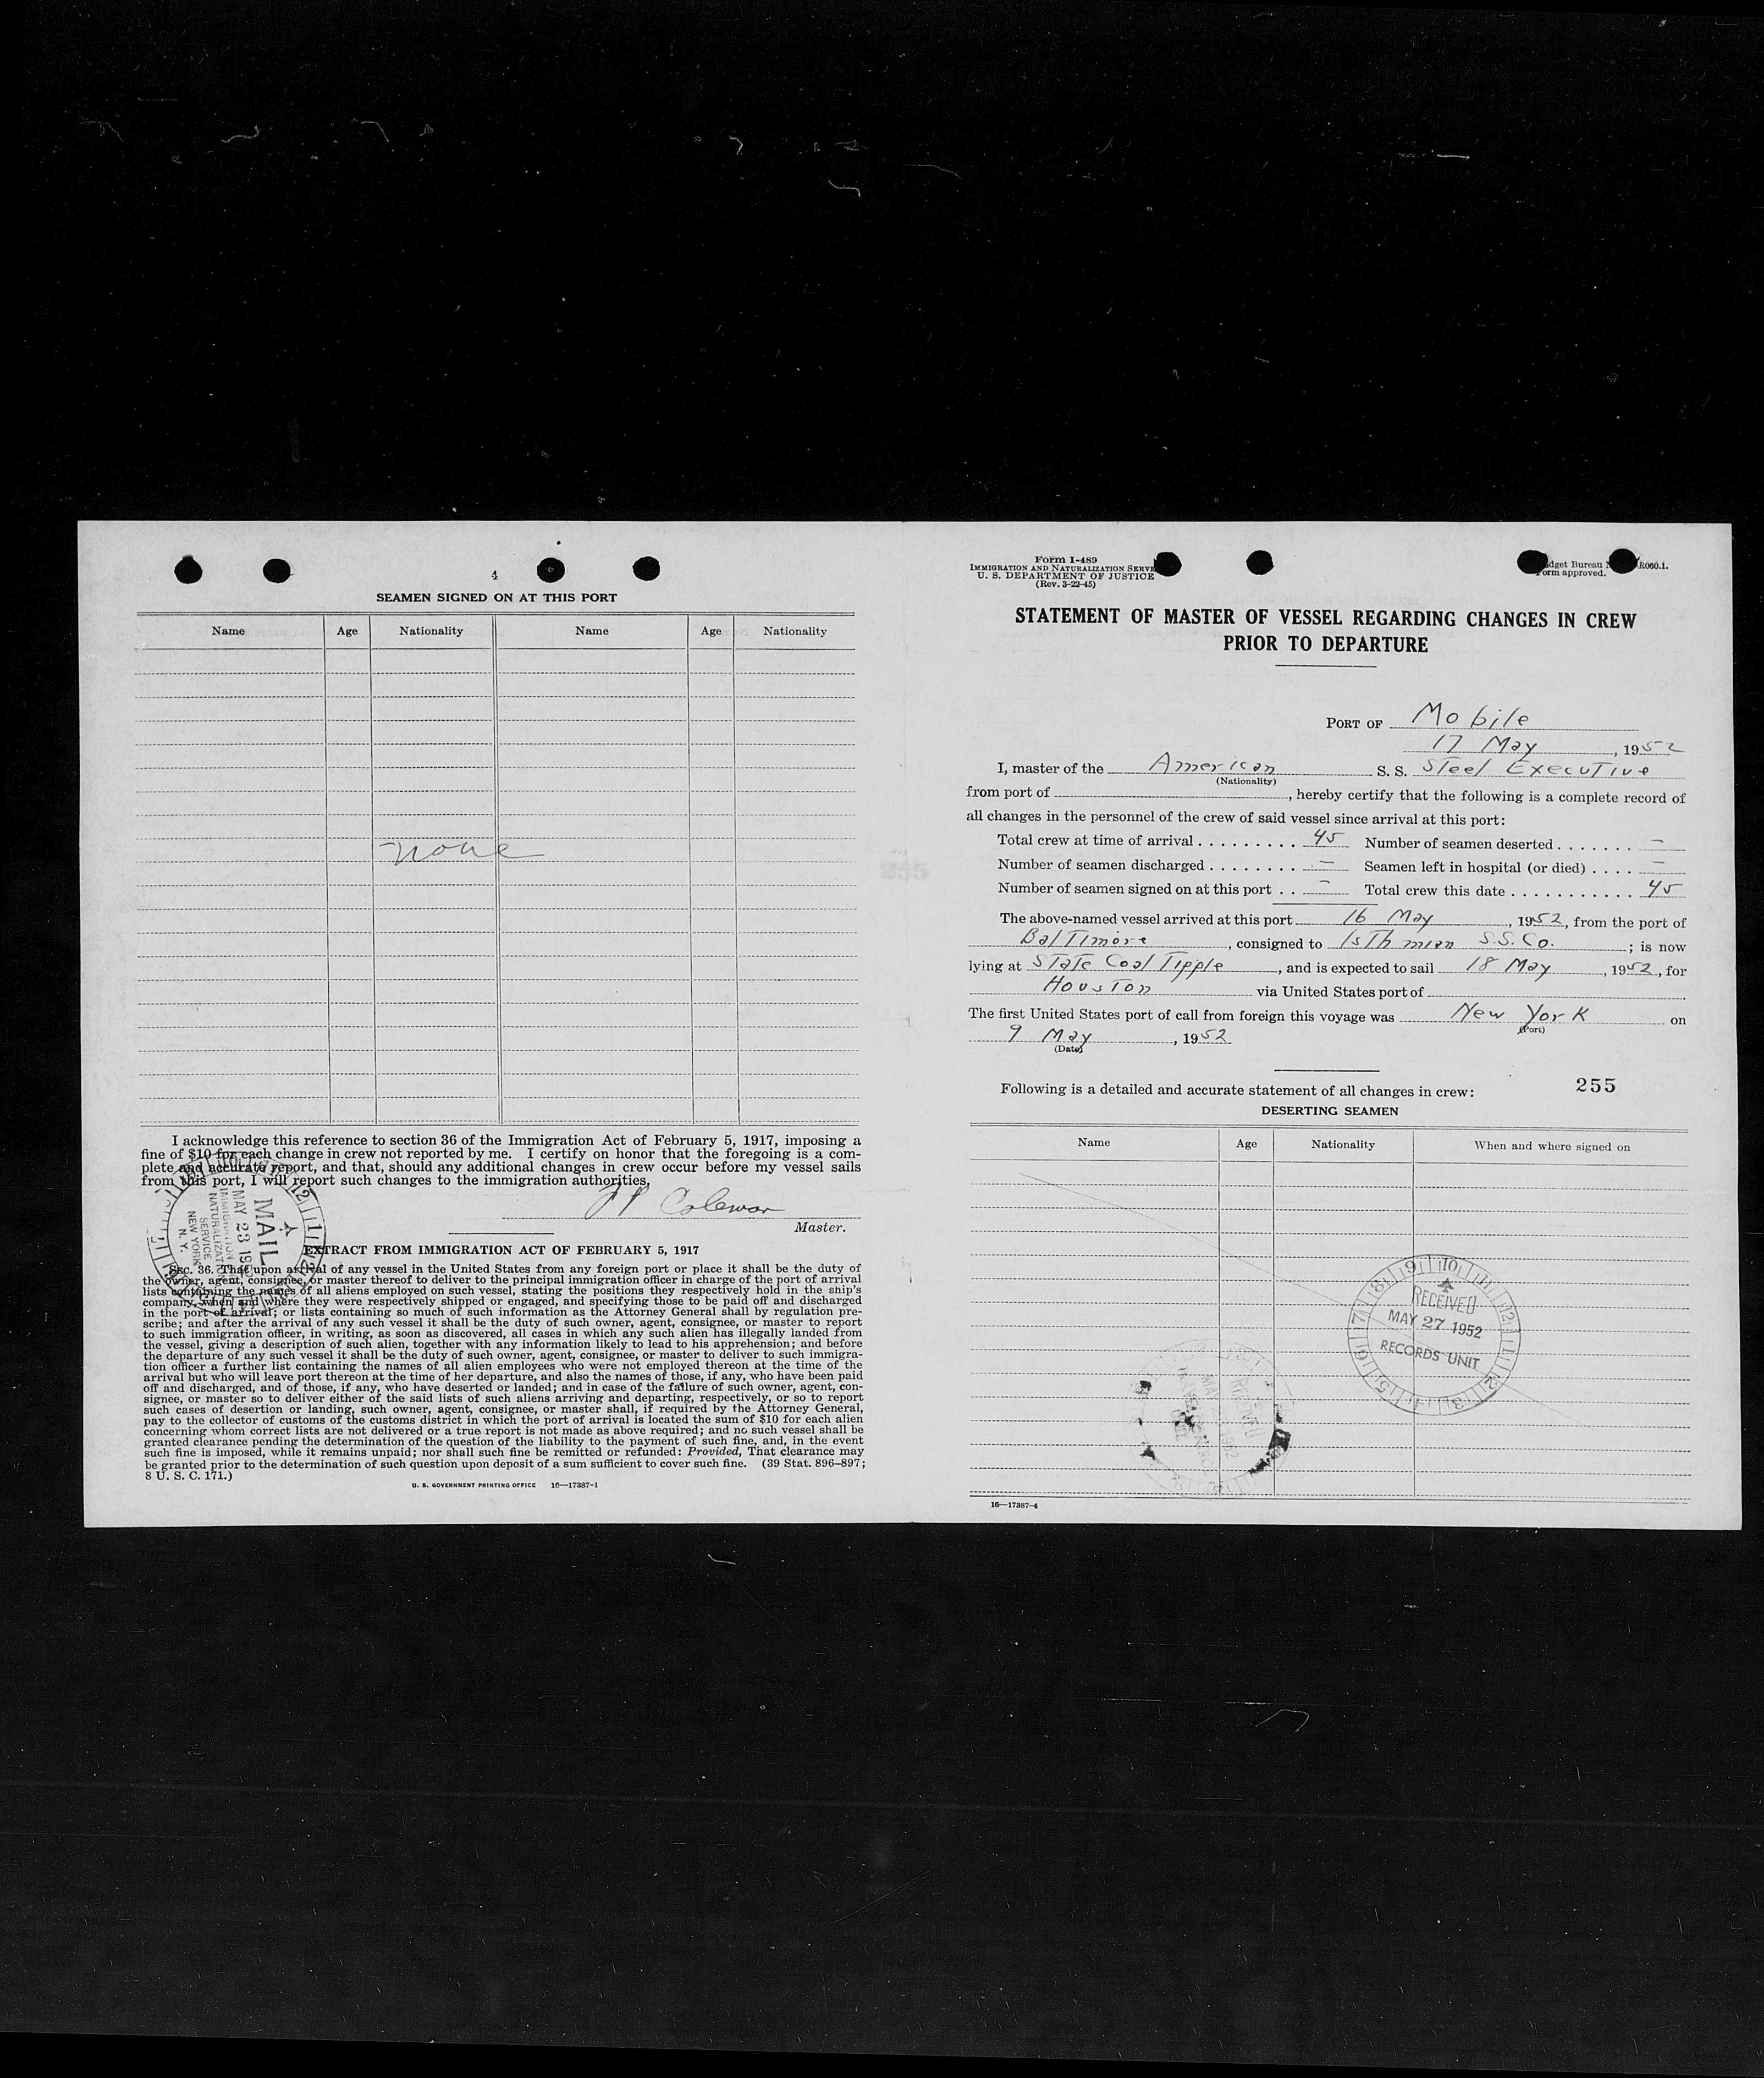 4
SEAMEN SIGNED ON AT THIS PORT
Name Age Nationality Name Age Nationality
none
I acknowledge this reference to section 36 of the Immigration Act of February 5, 1917, imposing a
fine of $10 for each change in crew not reported by me. I certify on honor that the foregoing is a com-
plete and accurate report, and that, should any additional changes in crew occur before my vessel sails
from this port, I will report such changes to the immigration authorities.
Master.
MAIL
MAY 23
IMMIGRATION
SERVICE
NEW YORK
N. Y.
EXTRACT FROM IMMIGRATION ACT OF FEBRUARY 5, 1917
Sec. 36. That upon arrival of any vessel in the United States from any foreign port or place it shall be the duty of
the owner, agent, consignee, or master thereof to deliver to the principal immigration officer in charge of the port of arrival
lists containing the names of all aliens employed on such vessel, stating the positions they respectively hold in the ship's
company, when and where they were respectively shipped or engaged, and specifying those to be paid off and discharged
in the port of arrival; or lists containing so much of such information as the Attorney General shall by regulation pre-
scribe; and after the arrival of any such vessel it shall be the duty of such owner, agent, consignee, or master to report
to such immigration officer, in writing, as soon as discovered, all cases in which any such alien has illegally landed from
the vessel, giving a description of such alien, together with any information likely to lead to his apprehension; and before
the departure of any such vessel it shall be the duty of such owner, agent, consignee, or master to deliver to such immigra-
tion officer a further list containing the names of all alien employees who were not employed thereon at the time of the
arrival but who will leave port thereon at the time of her departure, and also the names of those, if any, who have been paid
off and discharged, and of those, if any, who have deserted or landed; and in case of the failure of such owner, agent, con-
signee, or master so to deliver either of the said lists of such aliens arriving and departing, respectively, or so to report
such cases of desertion or landing, such owner, agent, consignee, or master shall, if required by the Attorney General,
pay to the collector of customs of the customs district in which the port of arrival is located the sum of $10 for each alien
concerning whom correct lists are not delivered or a true report is not made as above required; and no such vessel shall be
granted clearance pending the determination of the question of the liability to the payment of such fine, and, in the event
such fine is imposed, while it remains unpaid; nor shall such fine be remitted or refunded: Provided, That clearance may
be granted prior to the determination of such question upon deposit of a sum sufficient to cover such fine. (39 Stat. 896–897;
8 U. S. C. 171.)
U. S. GOVERNMENT PRINTING OFFICE 16—17387-1
Form I-489
IMMIGRATION AND NATURALIZATION SERVI
U. S. DEPARTMENT OF JUSTICE
(Rev. 3-22-45)
dget Bureau R060.1.
orm approved.
STATEMENT OF MASTER OF VESSEL REGARDING CHANGES IN CREW
PRIOR TO DEPARTURE
PORT OF Mobile
17 May, 1952
I, master of the American S. S. Steel Executive
(Nationality)
from port of , hereby certify that the following is a complete record of
all changes in the personnel of the crew of said vessel since arrival at this port:
Total crew at time of arrival . . . . . . . . . 45 Number of seamen deserted . . . . . . . –
Number of seamen discharged . . . . . . . . – Seamen left in hospital (or died) . . . . –
Number of seamen signed on at this port . . – Total crew this date . . . . . . . . . . . 45
The above-named vessel arrived at this port 16 May, 1952, from the port of
Baltimore, consigned to Isthmian S.S. Co. ; is now
lying at State Coal Tipple, and is expected to sail 18 May, 1952, for
Houston via United States port of
The first United States port of call from foreign this voyage was New York on
(Port)
9 May, 1952
(Date)
Following is a detailed and accurate statement of all changes in crew: 255
DESERTING SEAMEN
Name Age Nationality When and where signed on
RECEIVED
MAY 27 1952
RECORDS UNIT
16—17387-4